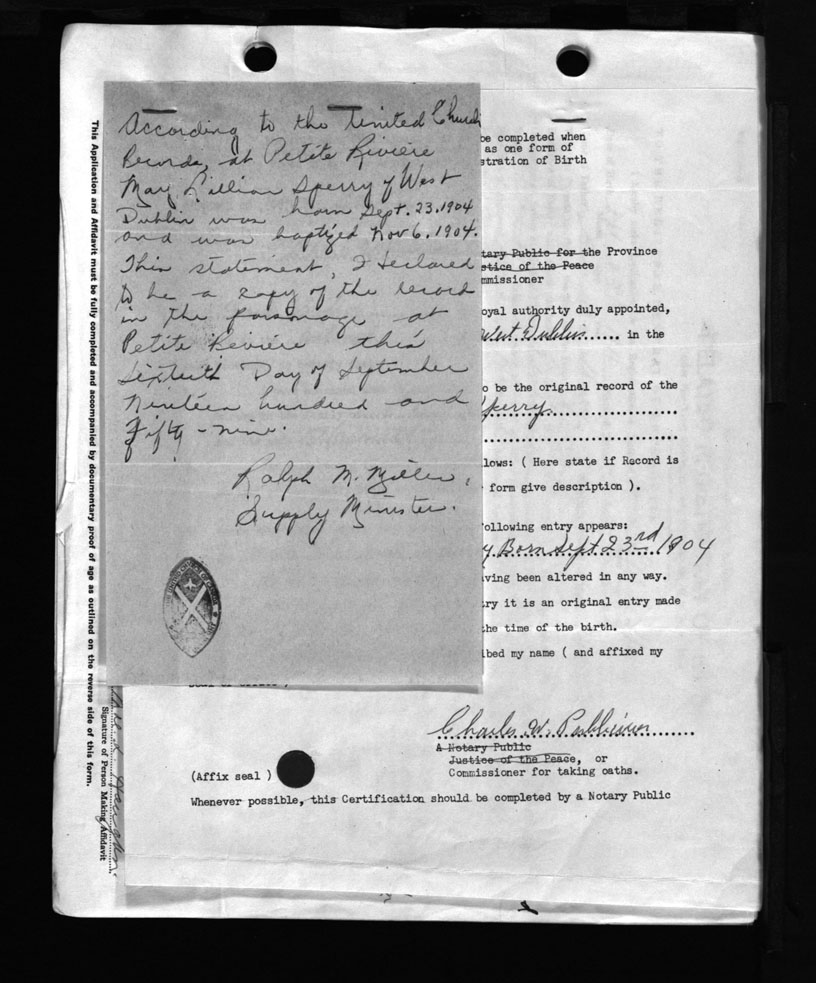 According to the United Church
Records, at Petite Riviere
May Lillian Sperry of West
Dublin was born Sept. 23, 1904
and was baptized Nov 6, 1904.
This statement, I declared
to be a copy of the record
in the parsonage at
Petite Riviere this
Sixteith Day of September
Nineteen hundred and
fifty-nine.
Ralph M. Miller,
Supply Minister.
be completed when
as one form of
stration of Birth
tary Public for the Province
stice of the Peace
mmissioner
oyal authority duly appointed,
West Dublin...... in the
o be the original record of the
Sperry
llows: ( Here state if Record is
form give description ).
ollowing entry appears:
y Born Sept 23rd 1904
ving been altered in any way.
try it is an original entry made
the time of the birth.
ibed my name ( and affixed my
Charles W.
A Notary Public
Justice of the Peace, or
Commissioner for taking oaths.
(Affix seal )
Whenever possible, this Certification should be completed by a Notary Public
This Application and Affidavit must be fully completed and accompanied by documentary proof of age as outlined on the reverse side of this form.
Signature of Person Making Affidavit